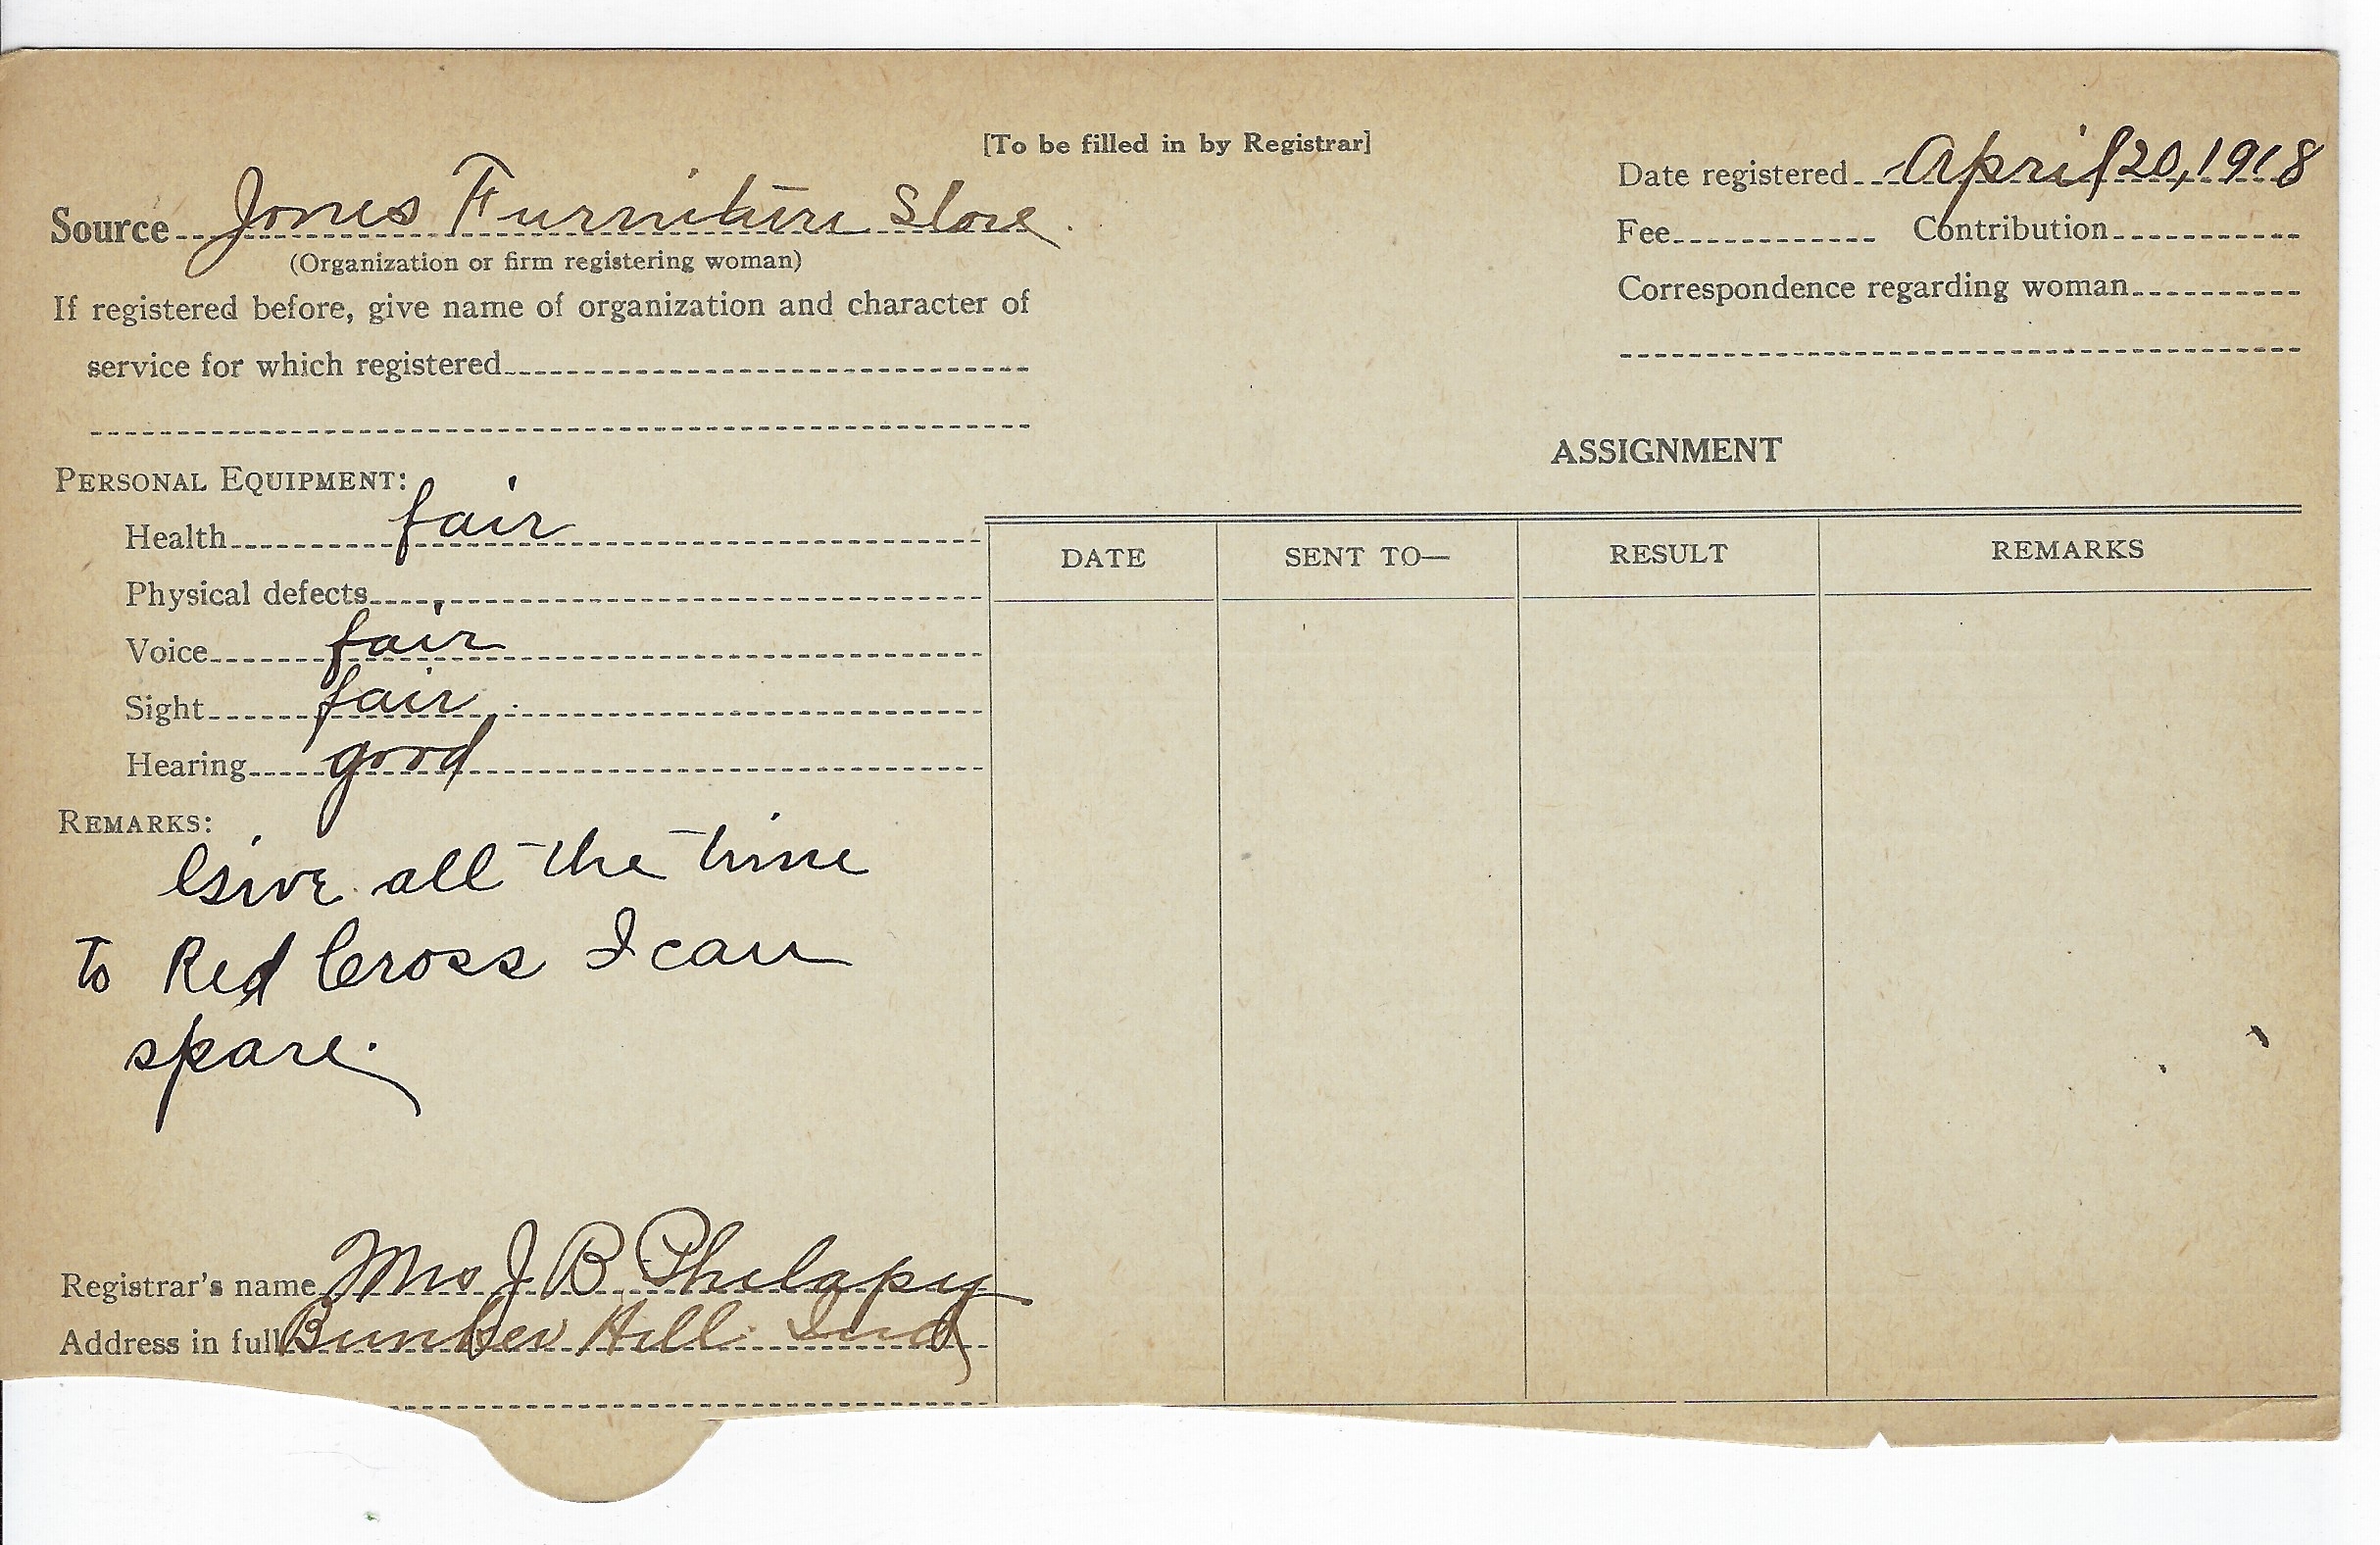 [To be filled in by Registrar]
Source Jones Furniture Store.
(Organization or firm registering woman)
If registered before, give name of organization and character of
service for which registered
Date registered April 20, 1918
Fee Contribution
Correspondence regarding woman
PERSONAL EQUIPMENT:
Health fair
Physical defects
Voice fair
Sight fair
Hearing good
REMARKS:
Give all the time
to Red Cross I can
spare.
Registrar's name Mrs J B Philapy
Address in full Bunker Hill Ind
ASSIGNMENT
DATE SENT TO— RESULT REMARKS